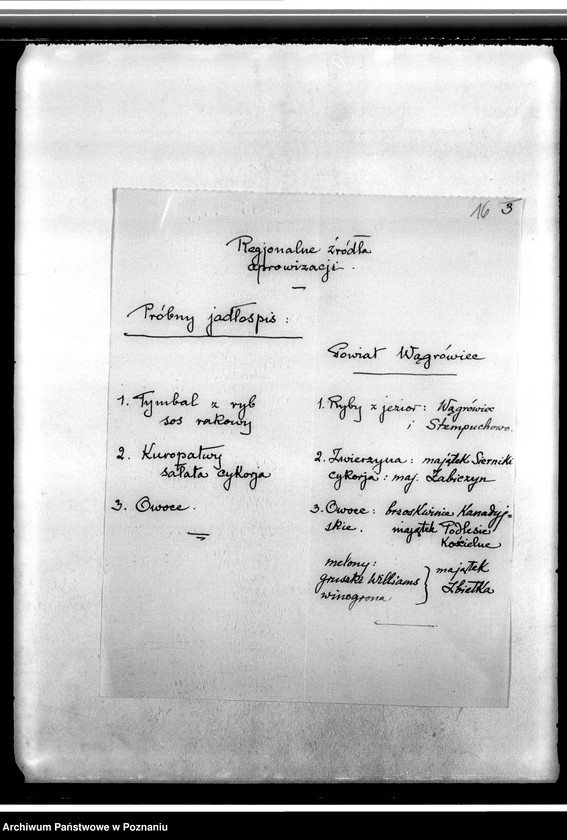 16 3
Regjonalne źródła
aprowizacji.
Próbny jadłospis:
Powiat Wągrówiec
1. Tymbal z ryb
sos rakowy
2. Kuropatwy
sałata cykorja
3. Owoce.
1. Ryby z jezior: Wągrówiec
i Stempuchowo.
2. Zwierzyna: majątek Sierniki
cykorja: maj. Żabiczyn
3. Owoce: brzoskwinie Kanadyj-
skie. majątek Podlesie
Kościelne
melony:
gruszki Williams
winogrona
majątek
Zbietka
Archiwum Państwowe w Poznaniu